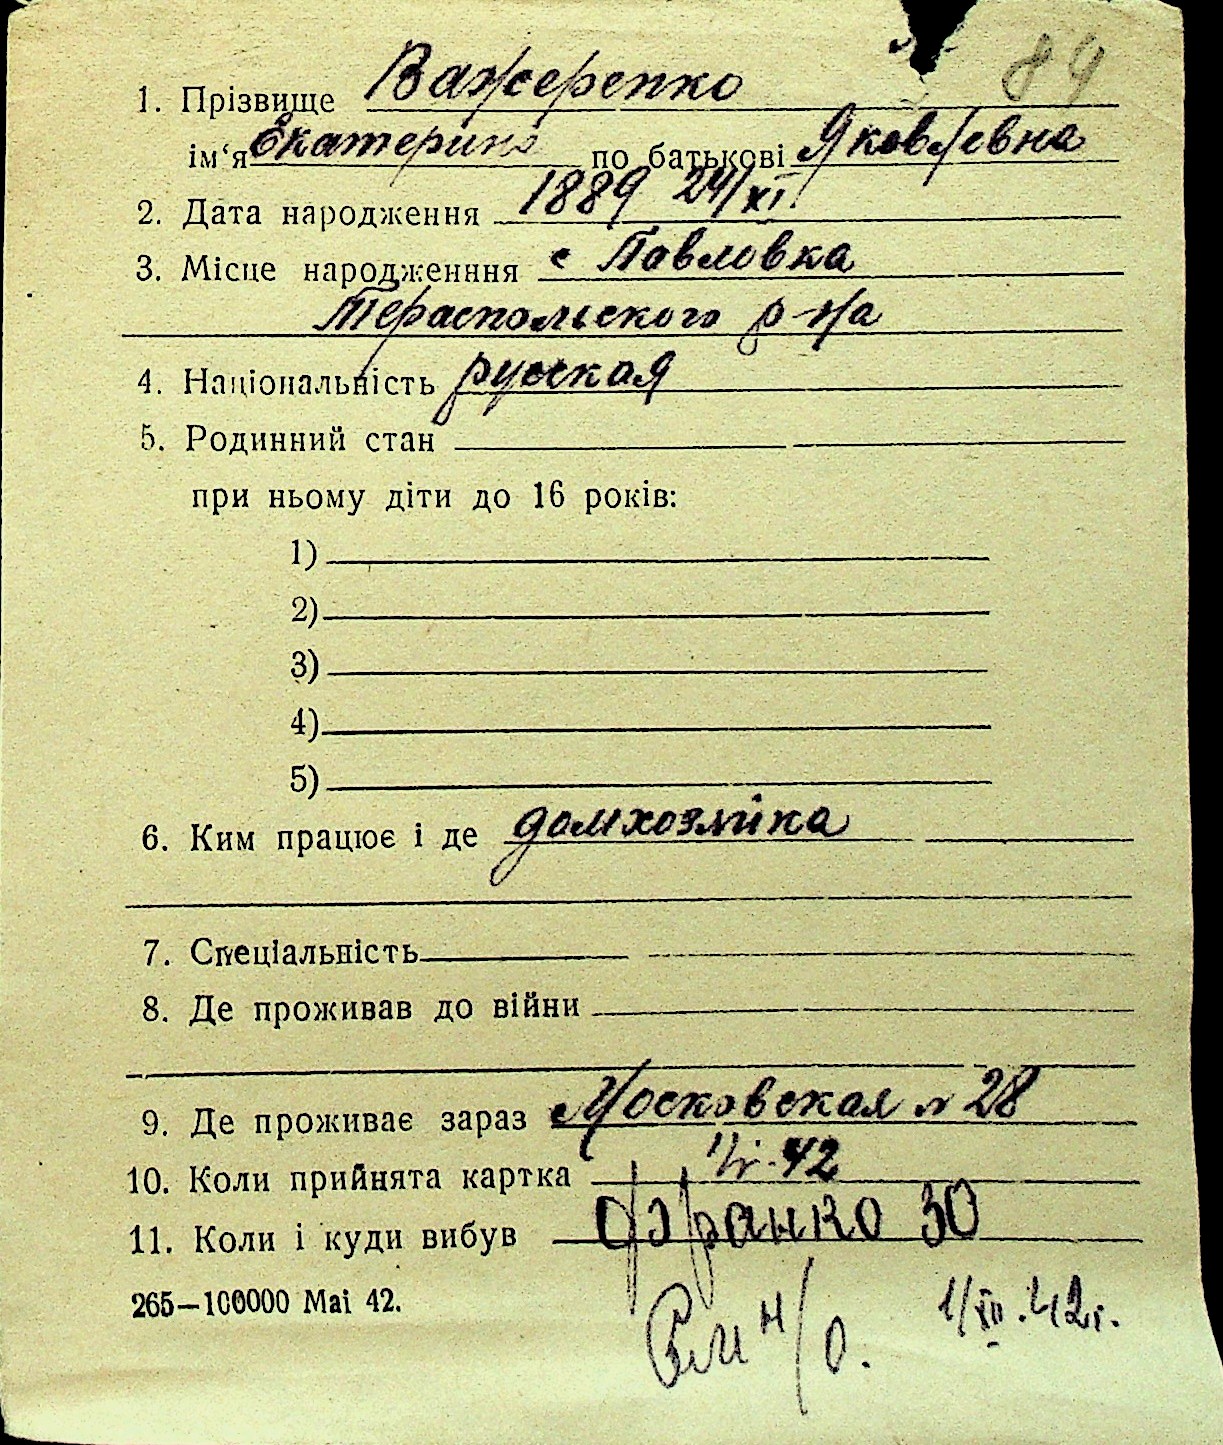 89
1. Прізвище Важеренко
ім‘я Екатерина по батькові Яковлевна
2. Дата народження 1889 24/XI
3. Місце народженння с Павловка
Тераспольского р-на
4. Національність русская
5. Родинний стан
при ньому діти до 16 років:
1)
2)
3)
4)
5)
6. Ким працює і де домхозяйка
7. Спеціальність
8. Де проживав до війни
9. Де проживає зараз Московская № 28
10. Коли прийнята картка 42
11. Коли і куди вибув Франко 30
265—100000 Mai 42.
1/XII.42г.